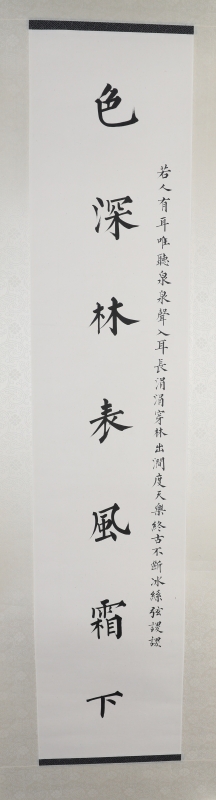 若人有耳唯聽泉泉聲入耳長涓涓穿林出澗度天樂終古不斷冰絲弦謖謖
色深林表風霜下